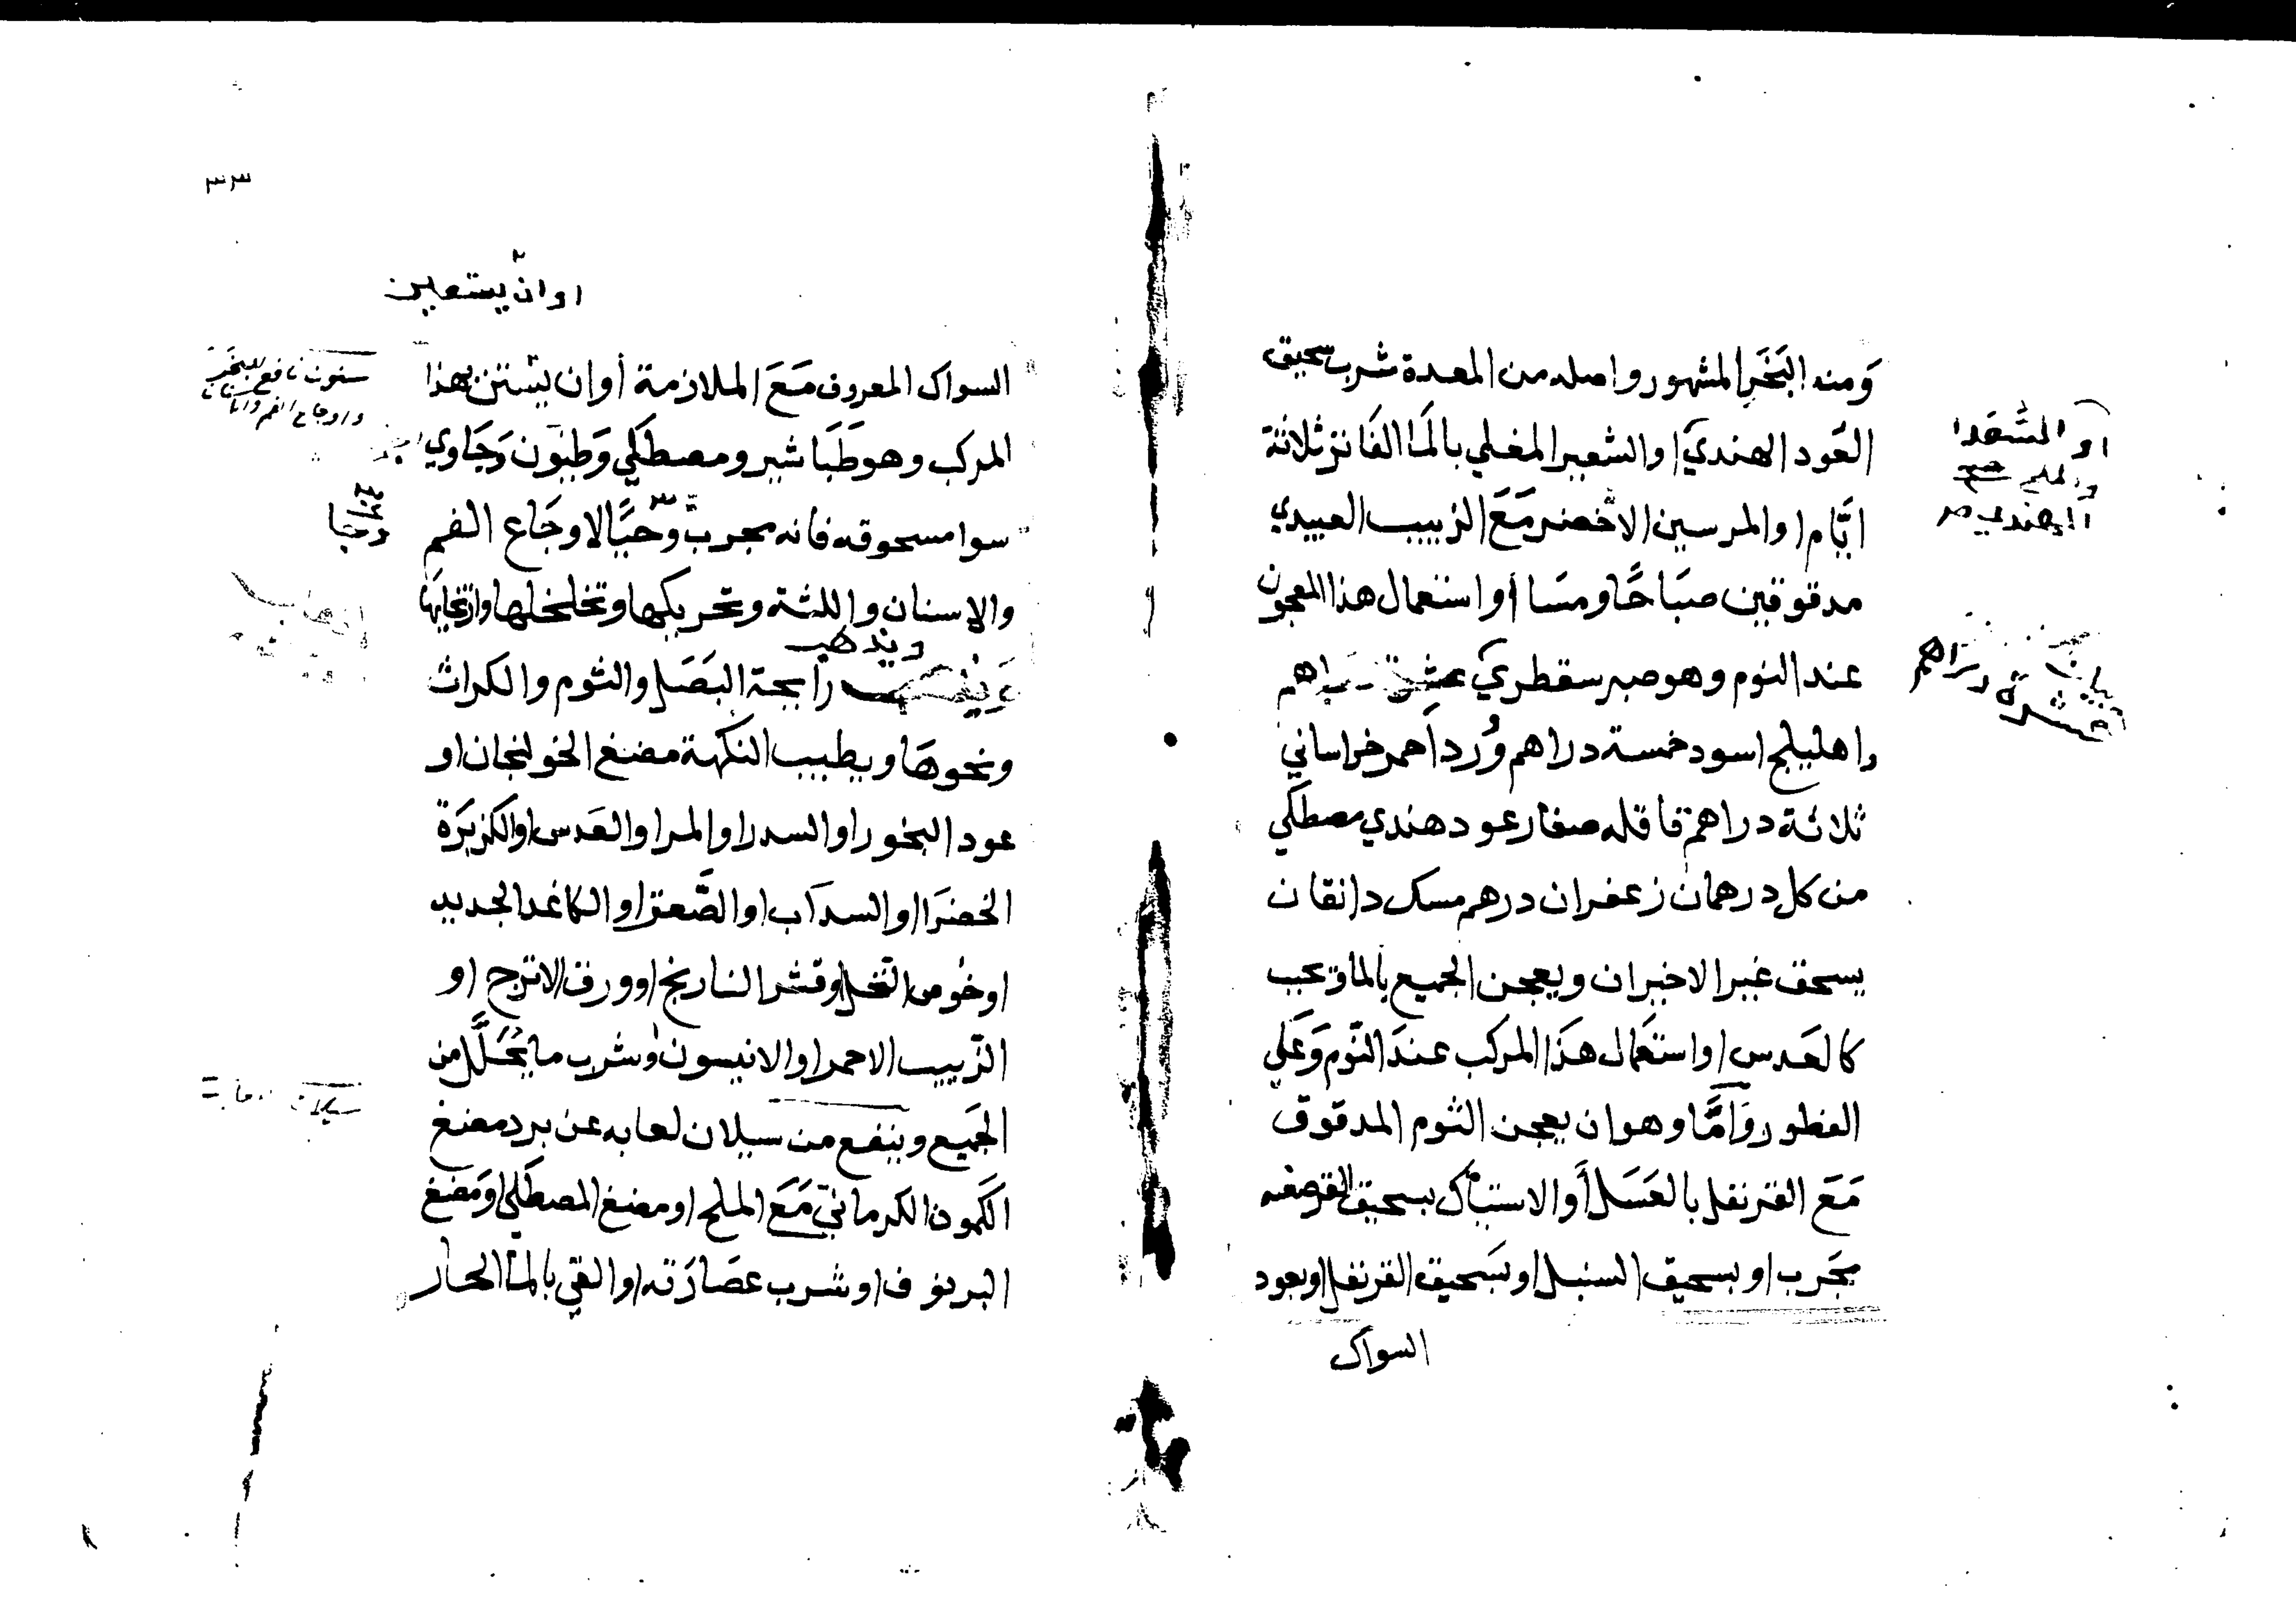 ومنه البَخَر المشهور واصله من المعدة شرب سحيق
العَود الهندي او الشعير المغلي بالمَا الفَاتر ثلاثة
ايَّام او المرسين الاخضر مَعَ الزبيب العبيدي
مدقوقين صبَاحًا ومسَا أو استعمال هذا المعجون
عند النوم وهو صبر سقطري عشرة دراهم
واهليلج اسود خمسة دراهم وَرد احمر خراساني
ثلاثة دراهم قاقله صغار عود هندي مصطكي
من كل درهمان زعفران درهم مسك دانقان
يسحق غير الاخيران ويعجن الجميع بالما ويحبب
كالعَدس او استعَمال هذَا المركب عندَ النَّوم وَعَلي
الفطور دوَامًّا وهو ان يعجن الثوم المدقوق
مَعَ القرنفل بالعَسَل أو الاستيَاك بسحيق القرصفه
مجَرب او بسحيق السنبل او بسَحيق القرنفل او بعود
السواك
او المشَعَدا
والملح
الهندي
عشرة دراهم
٣٣
او ان يستعين
السواك المعروف مَعَ الملازمة أو ان يستن بهذا
المركب وهو طَبَاشير ومصطكَي وَطيون وَجَاوي
سوا مسحوقه فانه مجرب وحيًّا لاوجَاع الفم
والاسنان واللثة وتحريكها وتخلخلها وارتخايهَا
ويذهب رايحة البَصَل والثوم والكراث
ونحوهَا ويطيب النكهة مضغ الخولنجان او
عود البخور او السدر او المر او العَدس او الكزبَرَة
الخضرَا او السدَاب او الصَّعتر او الكاغد الجديد
او خوص النخل او قشر النارنج او ورق الاترج او
الزَّبيب الاحمر او الانيسون وشرب ما يُحَلَّل من
الجَميع وينفع من سيلان لعابه عن برد مضغ
الكَمون الكرماني مَعَ الملح او مضغ المصطَكي او مَضغ
البرنوف او شرب عصَارَته او القي بالمَا الحار
سنون نافع للبخر
واوجاع الفم والاسنان